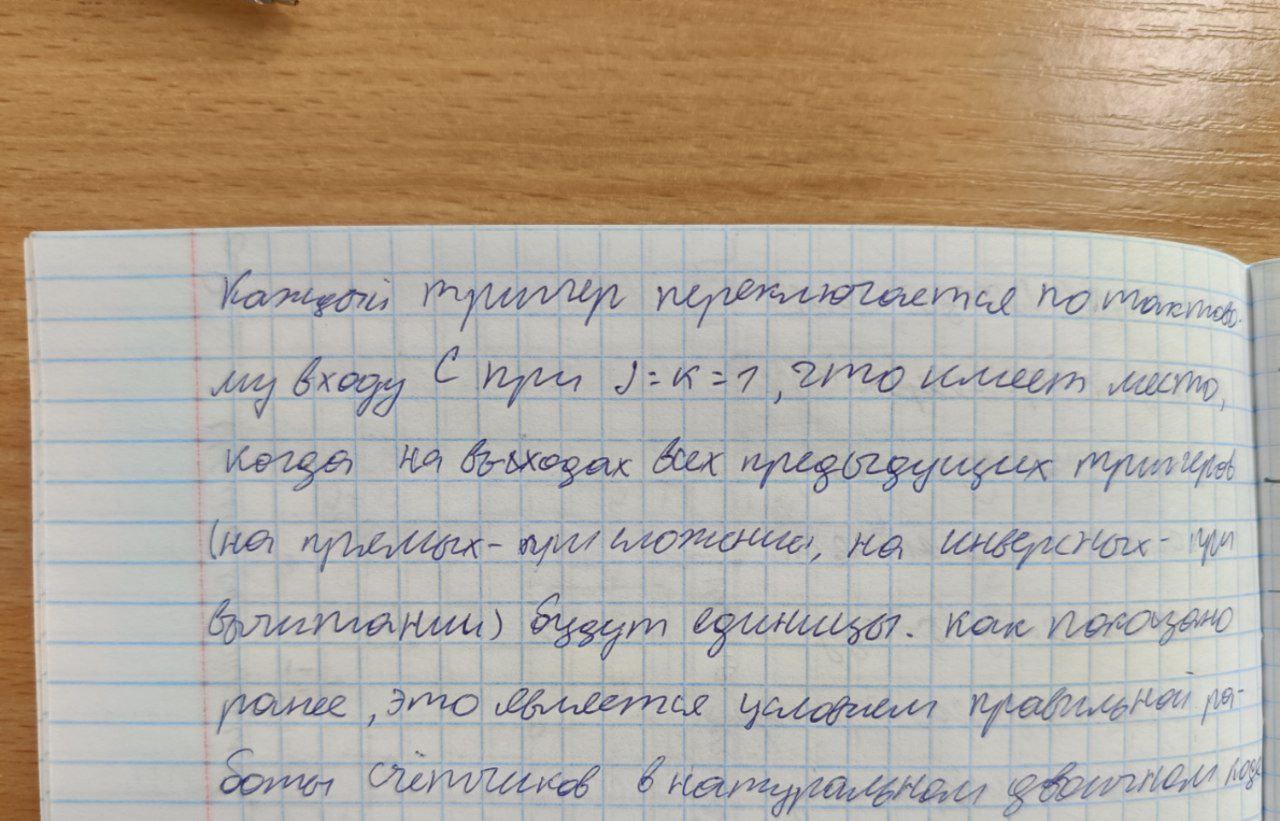 Каждый триггер переключается по тактово-
му входу С при J=K=1, что имеет место,
когда на выходах всех предыдущих триггеров
(на прямых- при сложении, на инверсных- при
вычитании) будут единицы. Как показано
ранее, это является условием правильной ра-
боты счётчиков в натуральном двоичном коде